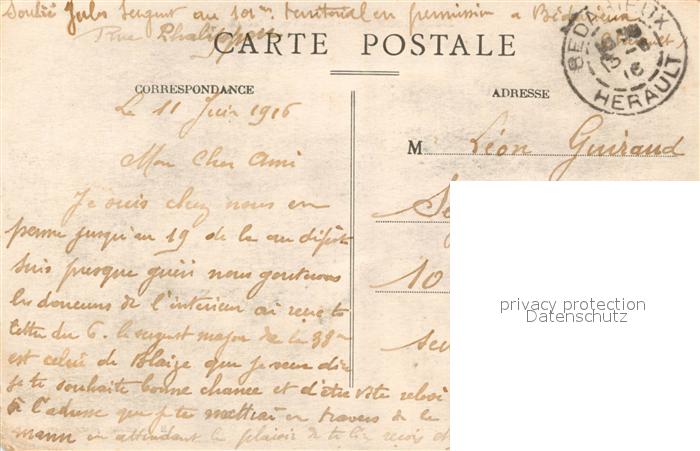 Soulié Jules Sergent au 101me territorial en permission a Bédarieux
Rue
CARTE POSTALE
BEDARIEUX
16
HERAULT
CORRESPONDANCE
ADRESSE
Le 11 Juin 1916
M Léon Guiraud
Mon Cher Ami
Je suis chez nous en
perme jusqu'au 19 de la au dépôt
suis presque guéri nous goutons
les douceurs de l'intérieur ai reçu ta
lettre du 6. le sergent major de la 38me
10
est celui de Blaize que je veux dire
je te souhaite bonne chance et d'être vite relevé
à l'adresse que je te mettrai en travers de la
en attendant le plaisir de te lire reçois
privacy protection
Datenschutz